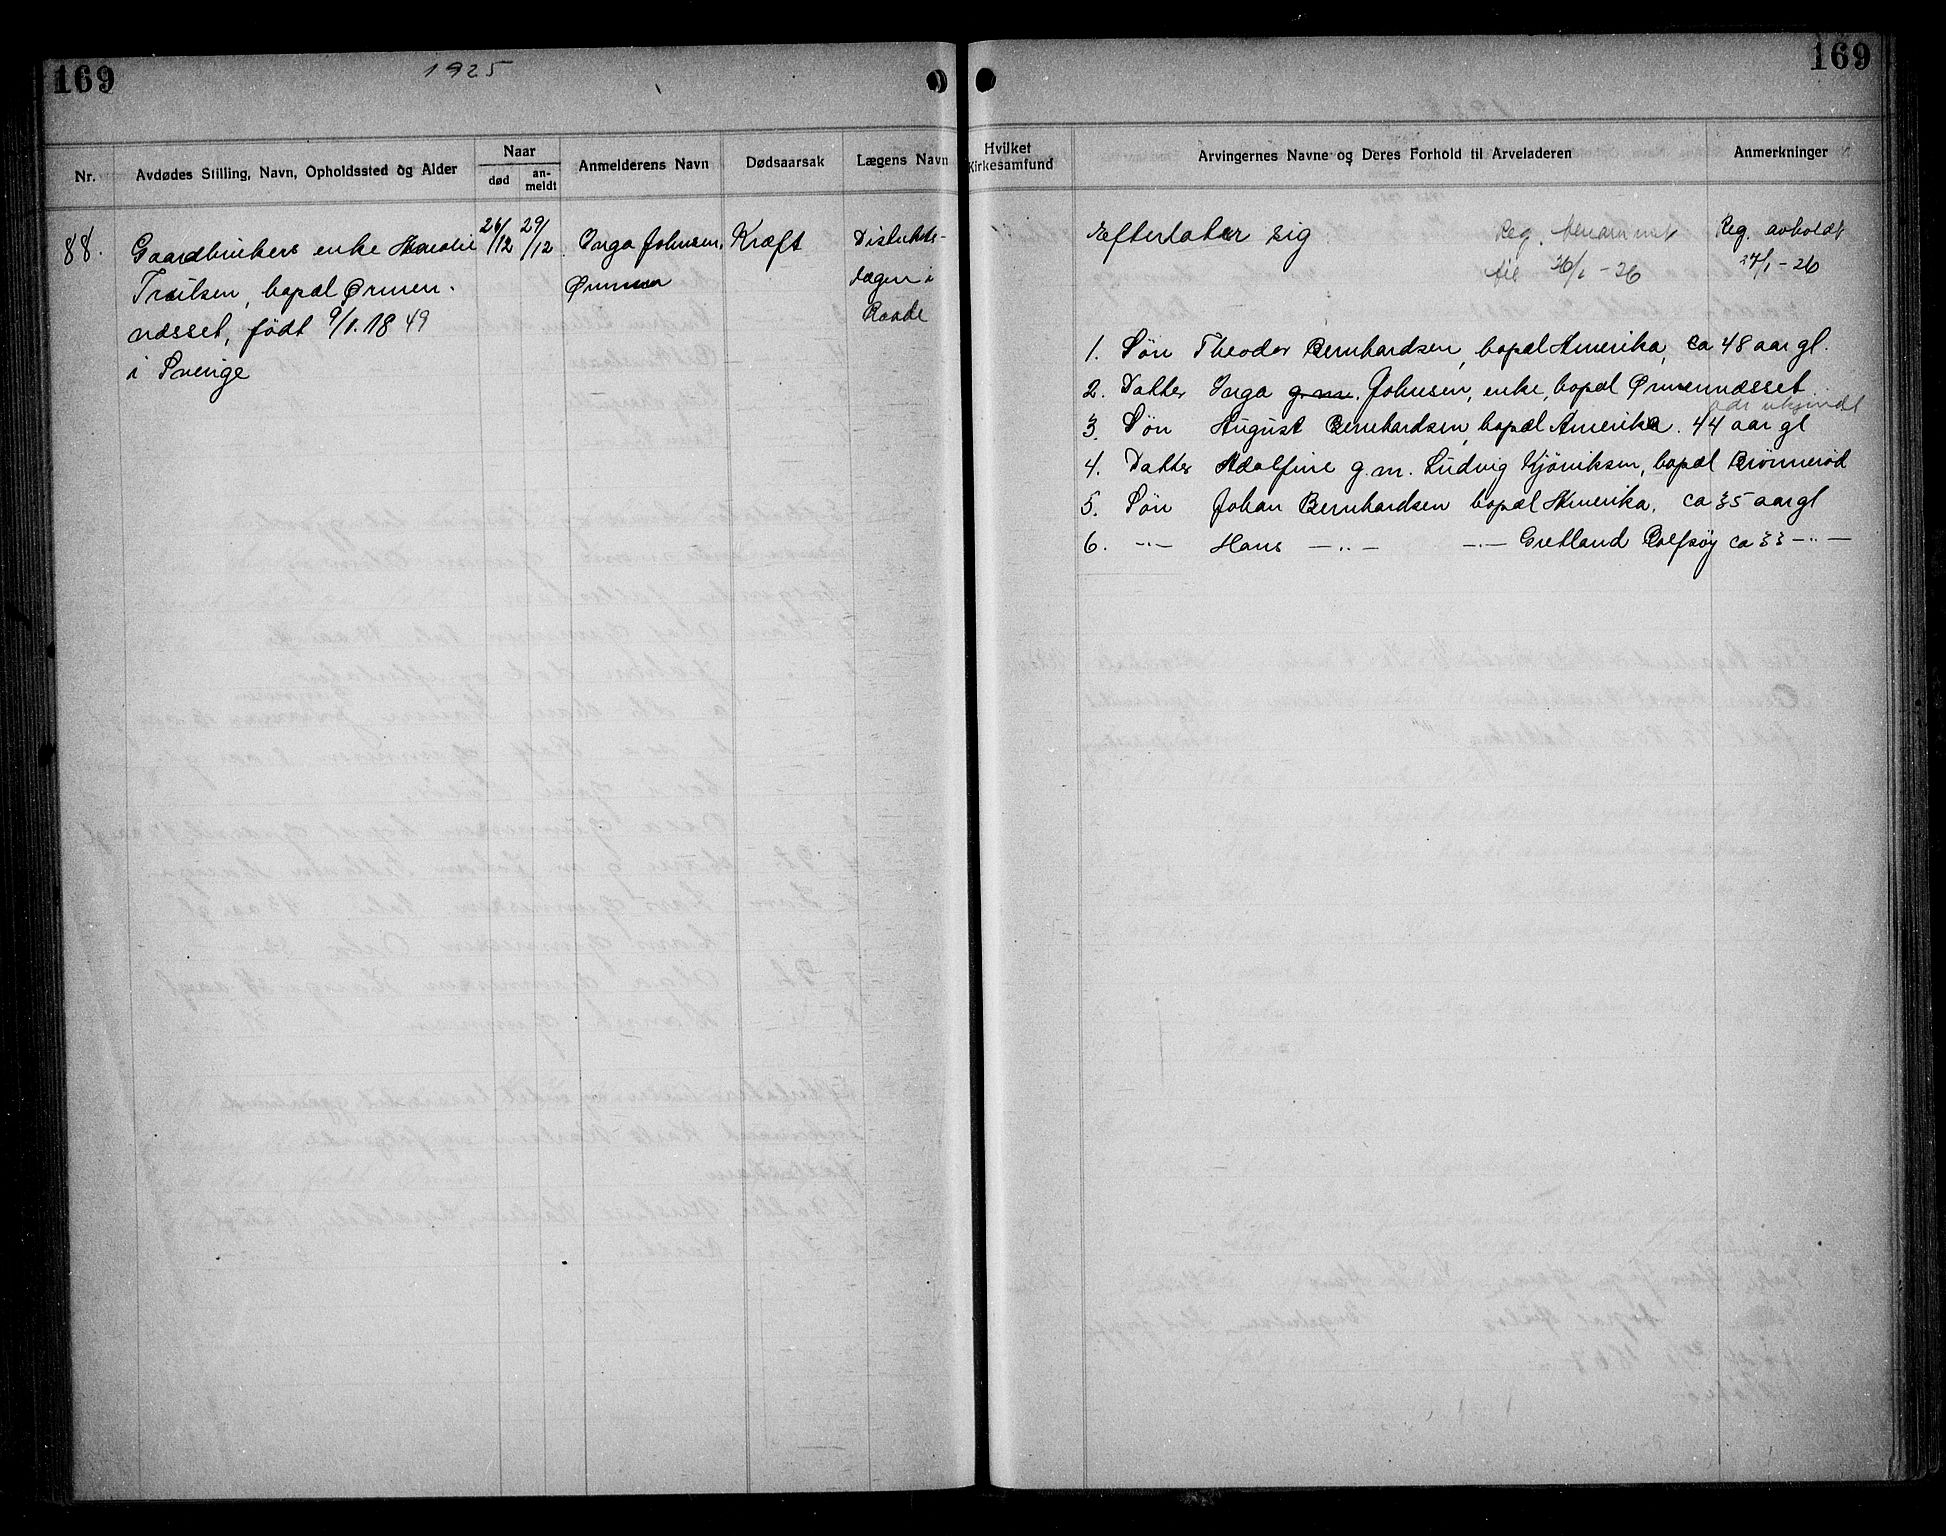 169
1925
169
Nr.
Avdødes Stilling, Navn, Opholdssted og Alder
Naar
død
an-
meldt
Anmelderens Navn
Dødsaarsak
Lægens Navn
Hvilket
Kirkesamfund
Arvingernes Navne og Deres Forhold til Arveladeren
Anmerkninger
88.
Gaardbrukers enke
Trulsen, bopæl Ørmen-
næsset, født 9/1. 1849
i Sverige
26/12
29/12
Inga Johnsen,
Ørmen
Kræft
Distrikts-
lægen i
Raade
Efterlater sig
Reg. berammet
til 26/1 - 26
Reg. avholdt
27/1 - 26
1. Søn Theodor Bernhardsen, bopæl Amerika, ca 48 aar gl.
2. Datter Inga g.m. Johnsen, enke, bopæl Ørmennæsset
adr. ukjendt
3. Søn August Bernhardsen, bopæl Amerika. 44 aar gl
4. Datter Adolfine g.m. Ludvig Kjöniksen, bopæl Brönnerød
5. Søn Johan Bernhardsen bopæl Amerika. ca 35 aar gl
6. —"— Hans —"— —"— Gretland Rolfsøy ca 33 —"—